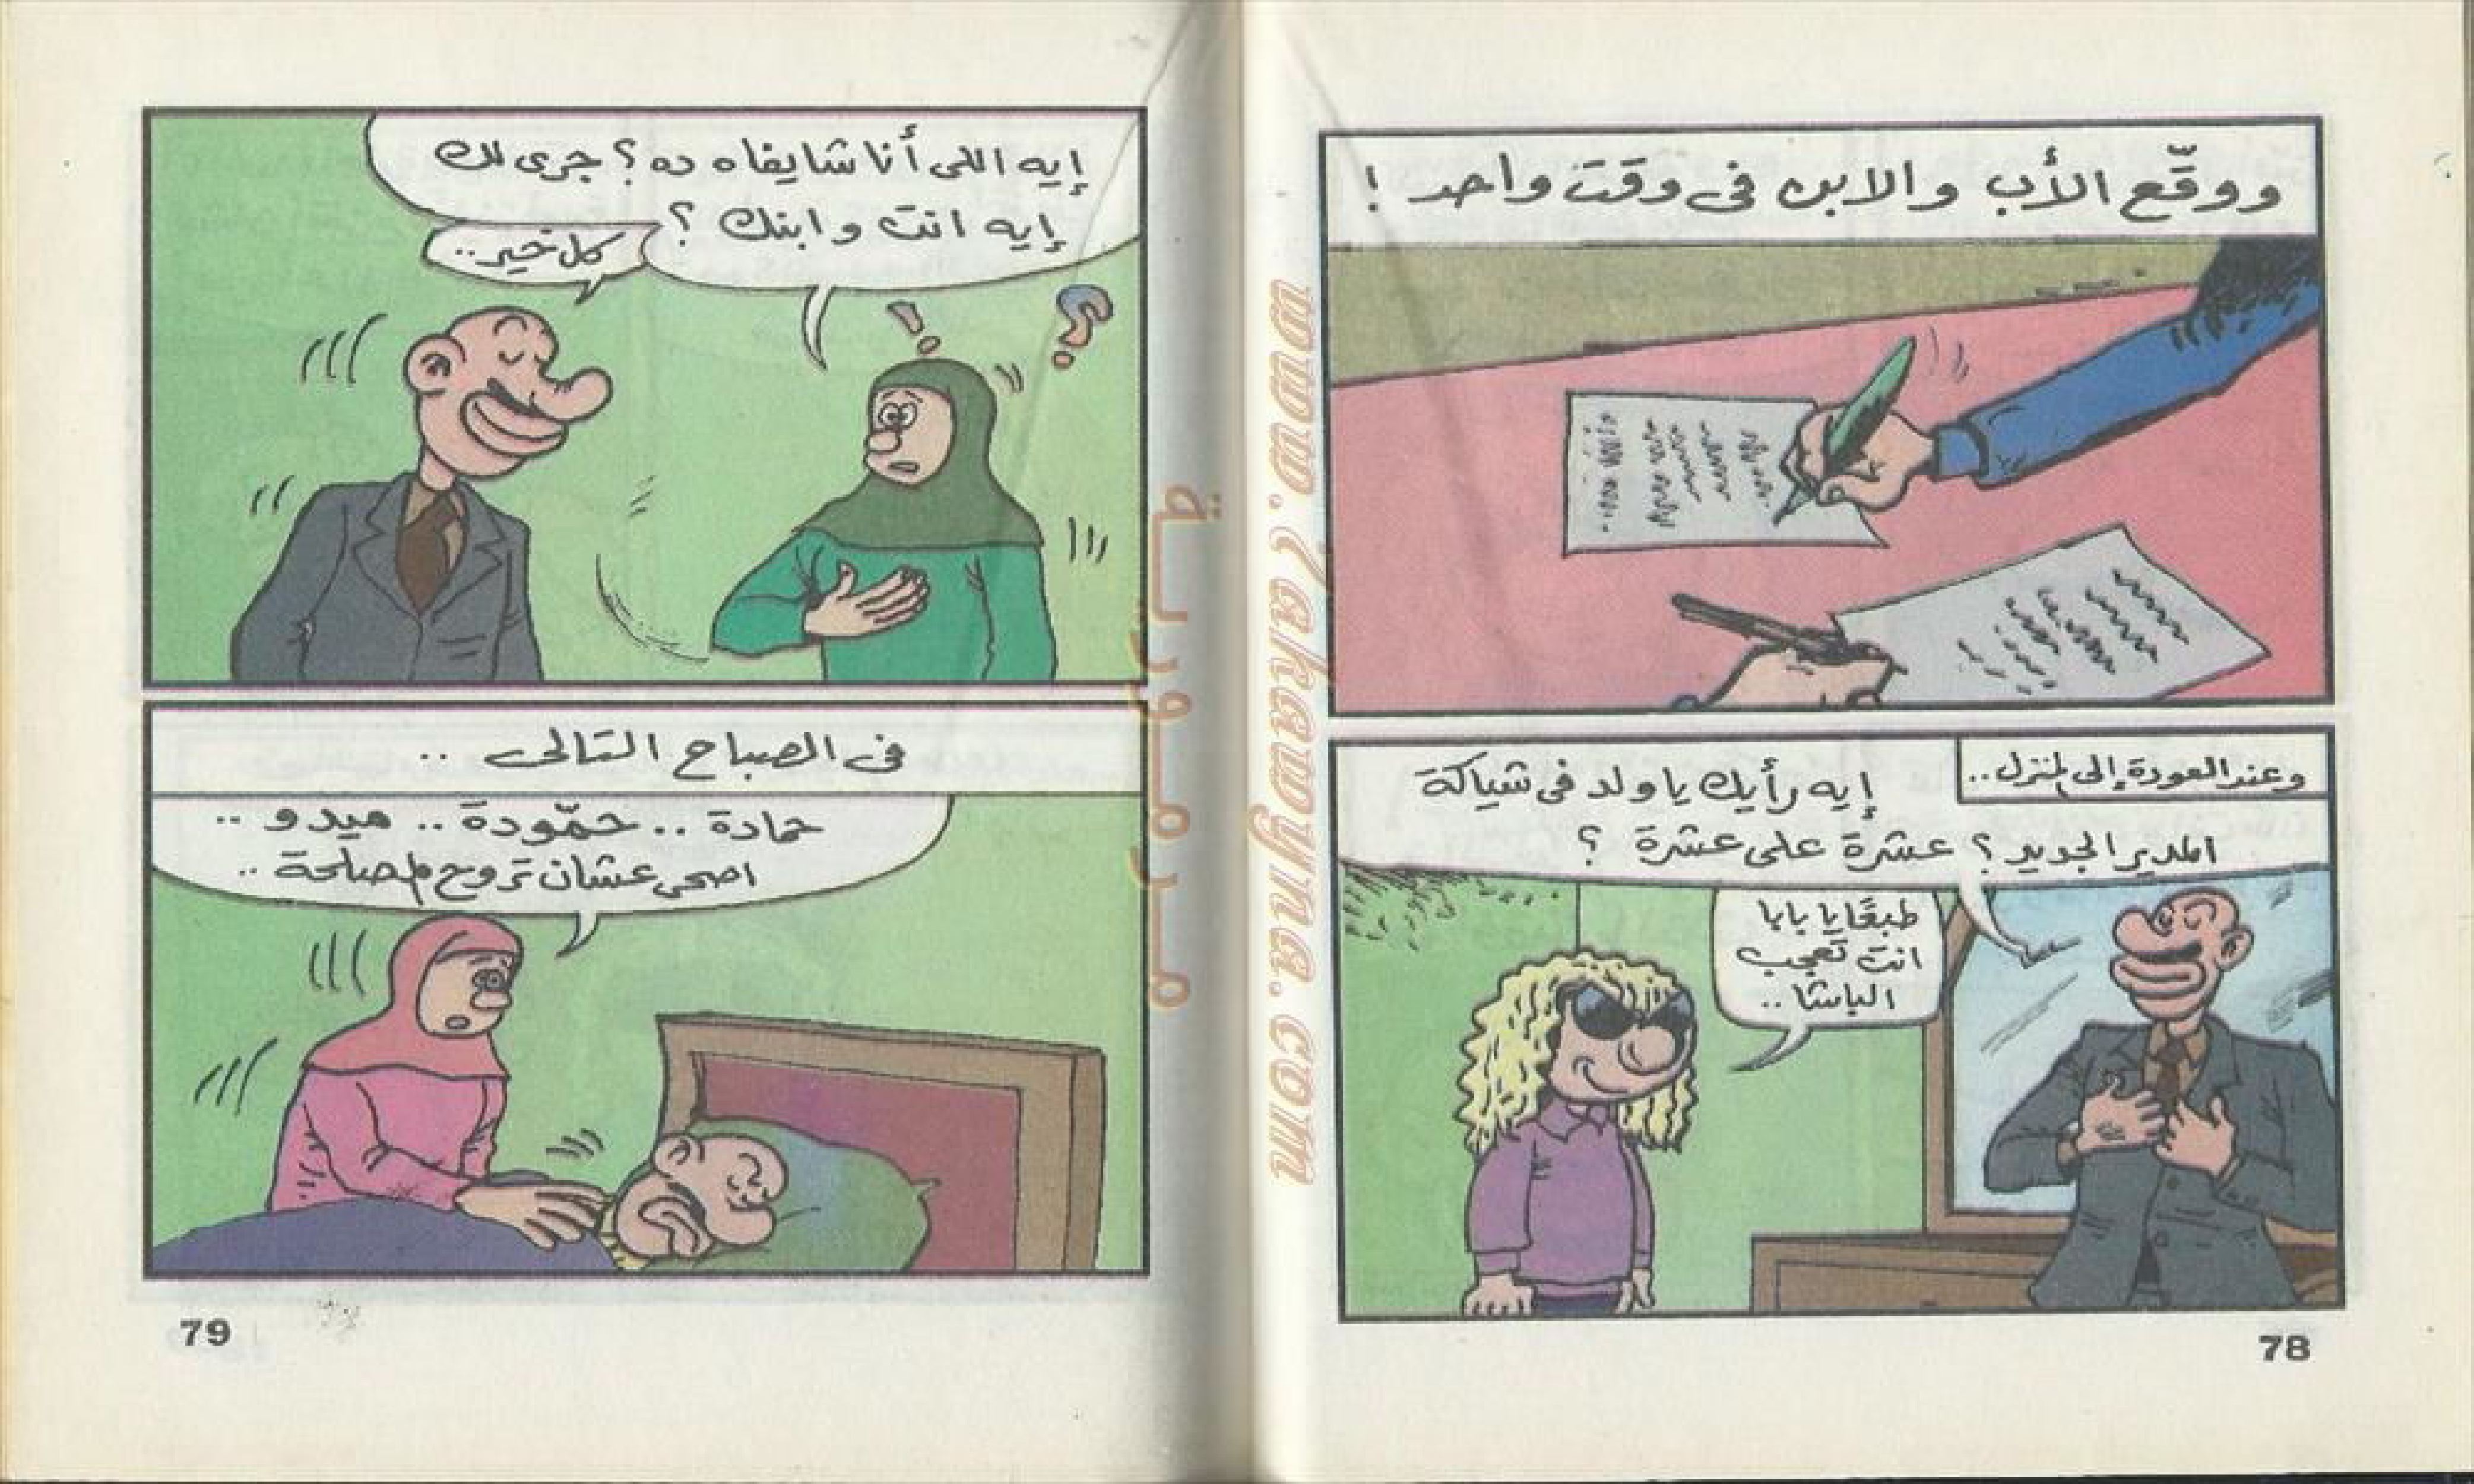 ووقّع الأب والابن فى وقت واحد !
وعند العودة إلى المنزل ..
إيه رأيك يا ولد فى شياكة
المدير الجديد ؟ عشرة على عشرة ؟
طبعًا يا بابا
انت تعجب
الباشا ..
78
إيه اللى أنا شايفاه ده ؟ جرى لك
إيه انت وابنك ؟
كل خير ..
فى الصباح التالى ..
حمادة .. حمّودة .. ميدو ..
اصحى عشان تروح المصلحة ..
79
www.7akawyna.com